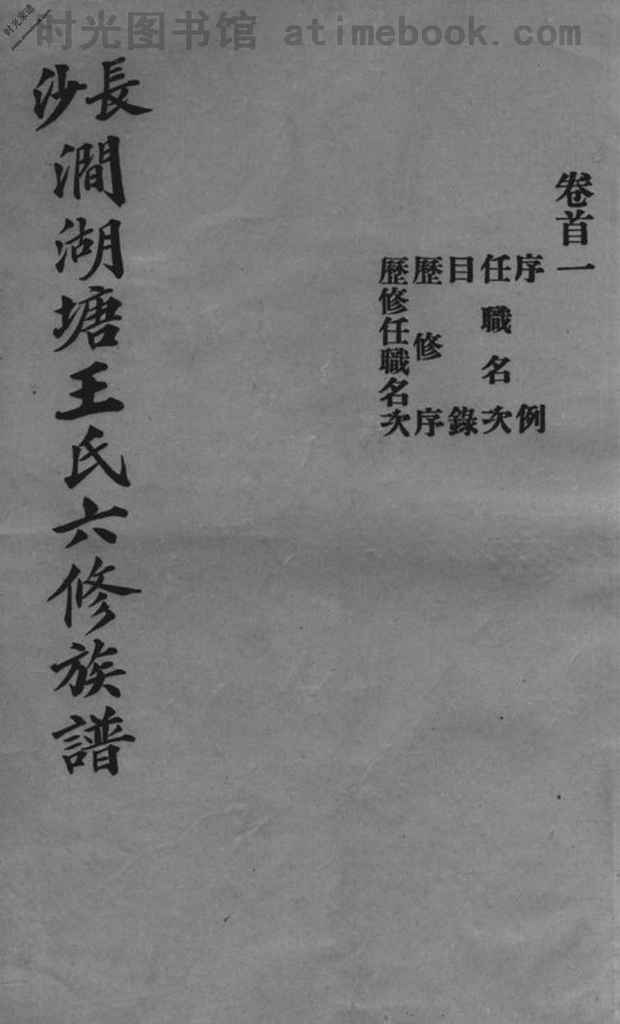 时光图书馆 atimebook.com
时光家谱
卷首一
序例
任職名次
目錄
歷修序
歷修任職名次
長沙
澗湖塘王氏六修族譜